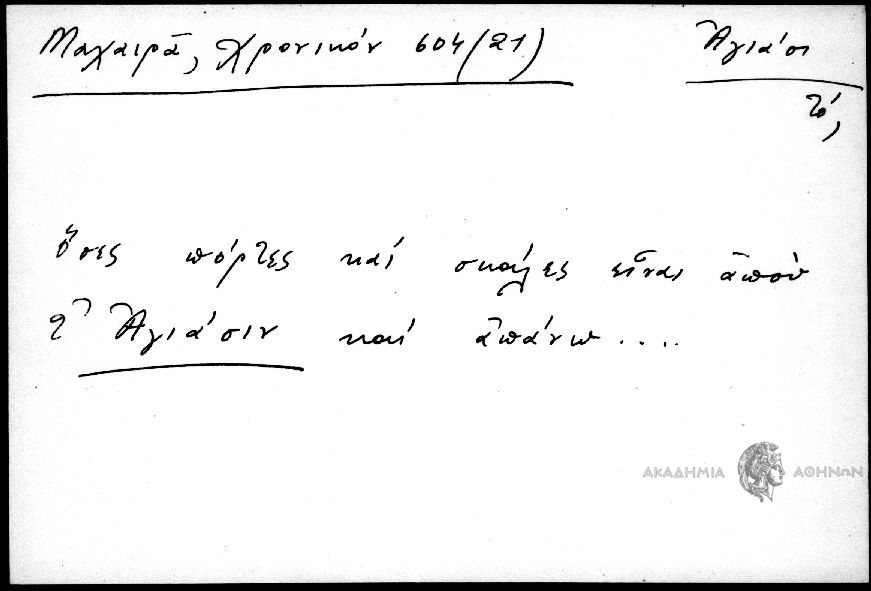 Μαχαιρᾶ, Χρονικόν 604 (21)
Ἁγιάσι
τό,
ὅσες πόρτες καί σκάλες εἶναι ἀπού
τ' Ἁγιάσιν καί ἀπάνω....
ΑΚΑΔΗΜΙΑ ΑΘΗΝΩΝ